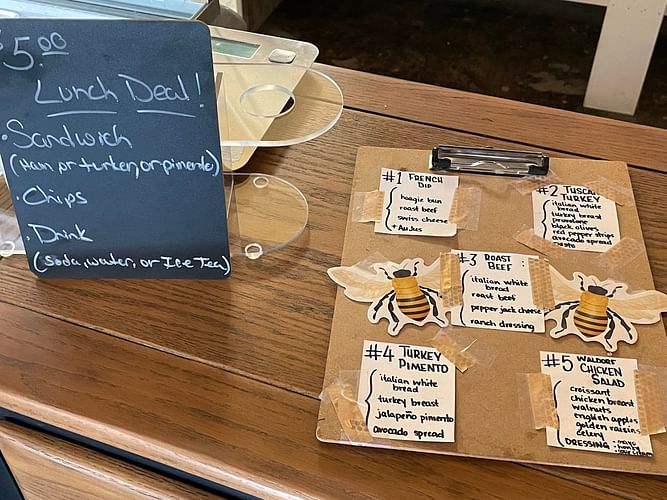 $5.00
Lunch Deal!
• Sandwich
(Ham or turkey, or pimento)
• Chips
• Drink
(Soda, water, or Ice Tea)
#1 FRENCH
DIP
hoagie bun
roast beef
swiss cheese
+ Au Jus
#2 TUSCAN
TURKEY
italian white
bread
turkey breast
provolone
black olives
red pepper strips
avocado spread
#3 ROAST
BEEF:
italian white
bread
roast beef
pepper jack cheese
ranch dressing
#4 TURKEY
PIMENTO
italian white
bread
turkey breast
jalapeño pimento
avocado spread
#5 WALDORF
CHICKEN
SALAD
croissant
chicken breast
walnuts
english apples
golden raisins
celery
DRESSING: mayo
• honey